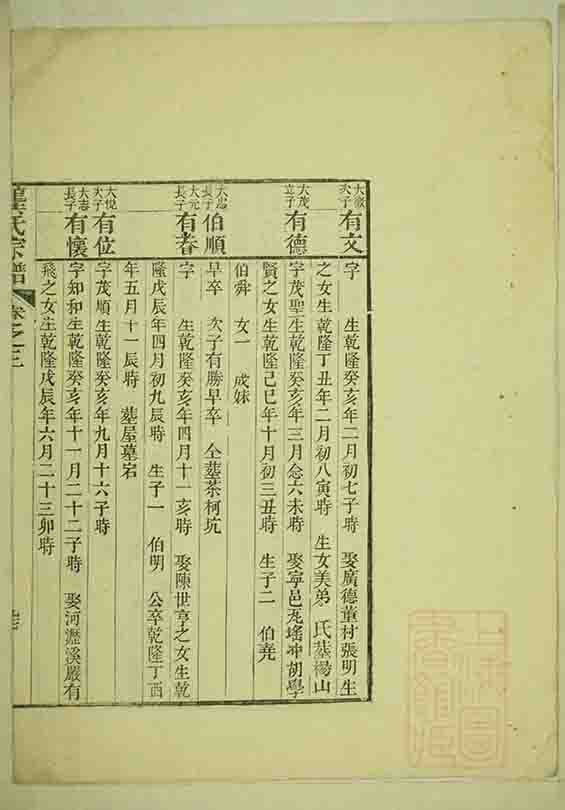 大
次子
有文
字　生乾隆癸亥年二月初七子時　娶廣德董村張明生
之女生乾隆丁丑年二月初八寅時　生女美弟　氏墓楊山
大茂
之子
有德
字茂聖生乾隆癸亥年三月念六未時　娶寧邑瑤冲胡學
賢之女生乾隆己巳年十月初三丑時　生子二　伯堯
伯舜　女一　成妹
大忠
長子
伯順
早卒　次子有勝早卒　仝墓茶柯坑
大元
長子
有春
字　生乾隆癸亥年四月十一亥時　娶陳世亨之女生乾
隆戊辰年四月初九辰時　生子一　伯明　公卒乾隆丁酉
年五月十一辰時　墓屋墓宕
大悅
次子
有位
字茂順生乾隆癸亥年九月十六子時
大志
長子
有懷
字知和生乾隆癸亥年十一月二十二子時　娶河瀝溪嚴有
飛之女生乾隆戊辰年六月二十三卯時
氏宗譜
卷之三